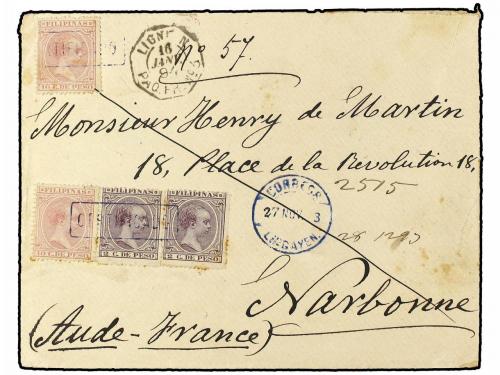 FILIPINAS
10 C. DE PESO
LIGNE N
16
JANV
94
PAQ. FR. Nº5
nº 57.
Monsieur Henry de Martin
18, Place de la Revolution 18,
2515
FILIPINAS FILIPINAS FILIPINAS
10 C. DE PESO 2 C. DE PESO 2 C. DE PESO
CORREOS
27 NOV 3
LINGAYEN
28 1293
Narbonne
(Aude-France)